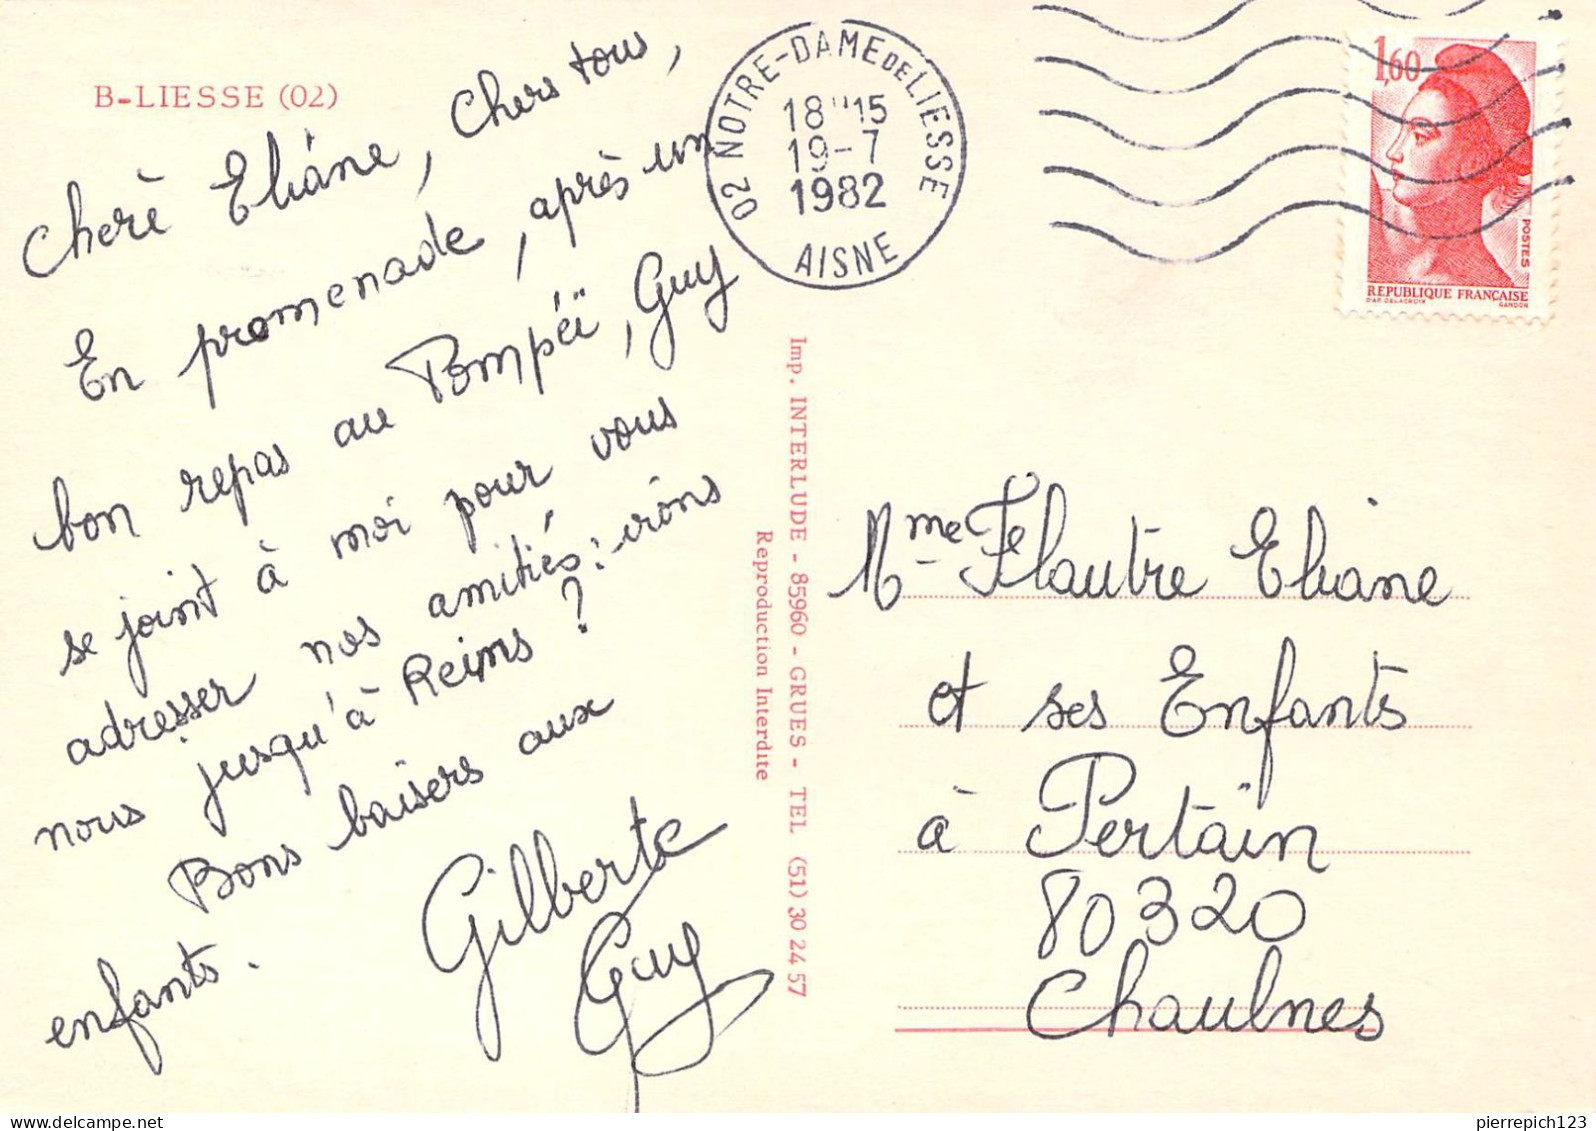 B-LIESSE (02)
Cherè Eliane, Chers tous,
En promenade, après un
bon repas au Pompéï, Guy
se joint à moi pour vous
adresser nos amitiés: irons
nous jusqu'à Reims?
Bons baisers aux
enfants.
Gilberte
Guy
02 NOTRE-DAME DE LIESSE
18H15
19-7
1982
AISNE
1,60
POSTES
REPUBLIQUE FRANÇAISE
D'AP. DELACROIX GANDON
Imp. INTERLUDE - 85960 - GRUES - TEL (51) 30 24 57
Reproduction Interdite
Mme Flautre Eliane
et ses Enfants
à Pertain
80320
Chaulnes
pierrepich123